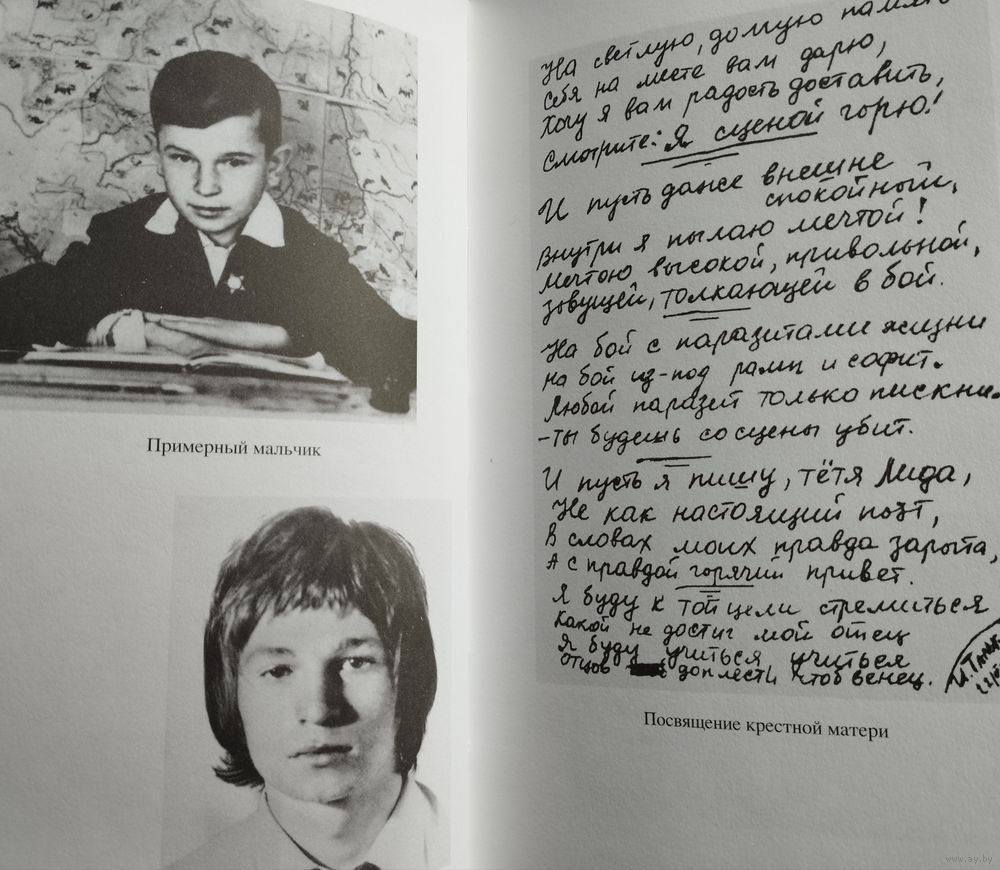 Примерный мальчик
На светлую, долгую память
Себя на месте вам дарю,
Хочу я вам радость доставить,
Смотрите: Я сценой горю!
И пусть даже внешне
спокойный,
Внутри я пылаю мечтой!
Мечтою высокой, привольной,
зовущей, толкающей в бой.
На бой с паразитами жизни
на бой из-под рамп и софит.
Любой паразит только пискни
-ты будешь со сцены убит.
И пусть я пишу, тётя Лида,
Не как настоящий поэт,
В словах моих правда зарыта,
А с правдой горячий привет.
Я буду к той цели стремиться
Какой не достиг мой отец
Я буду учиться учиться
Отцов доплести чтоб венец.
Посвящение крестной матери
www.ay.by